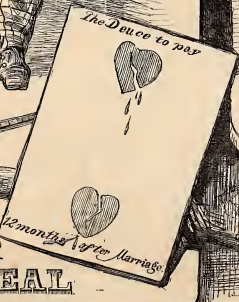 The Deuce to pay
12 months after Marriage.
EAL